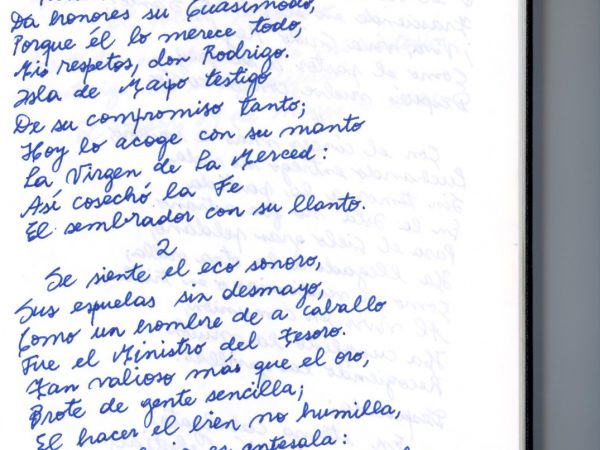 Da honores su Cuasimodo,
Porque él lo merece todo,
Mis respetos, don Rodrigo.
Isla de Maipo testigo
De su compromiso tanto;
Hoy lo acoge con su manto
La Virgen de La Merced:
Así cosechó la Fe
El sembrador con su llanto.
2
Se siente el eco sonoro,
Sus espuelas sin desmayo,
Como un hombre de a caballo
Fue el Ministro del Tesoro.
Tan valioso más que el oro,
Brote de gente sencilla;
El hacer el bien no humilla,
es antesala: